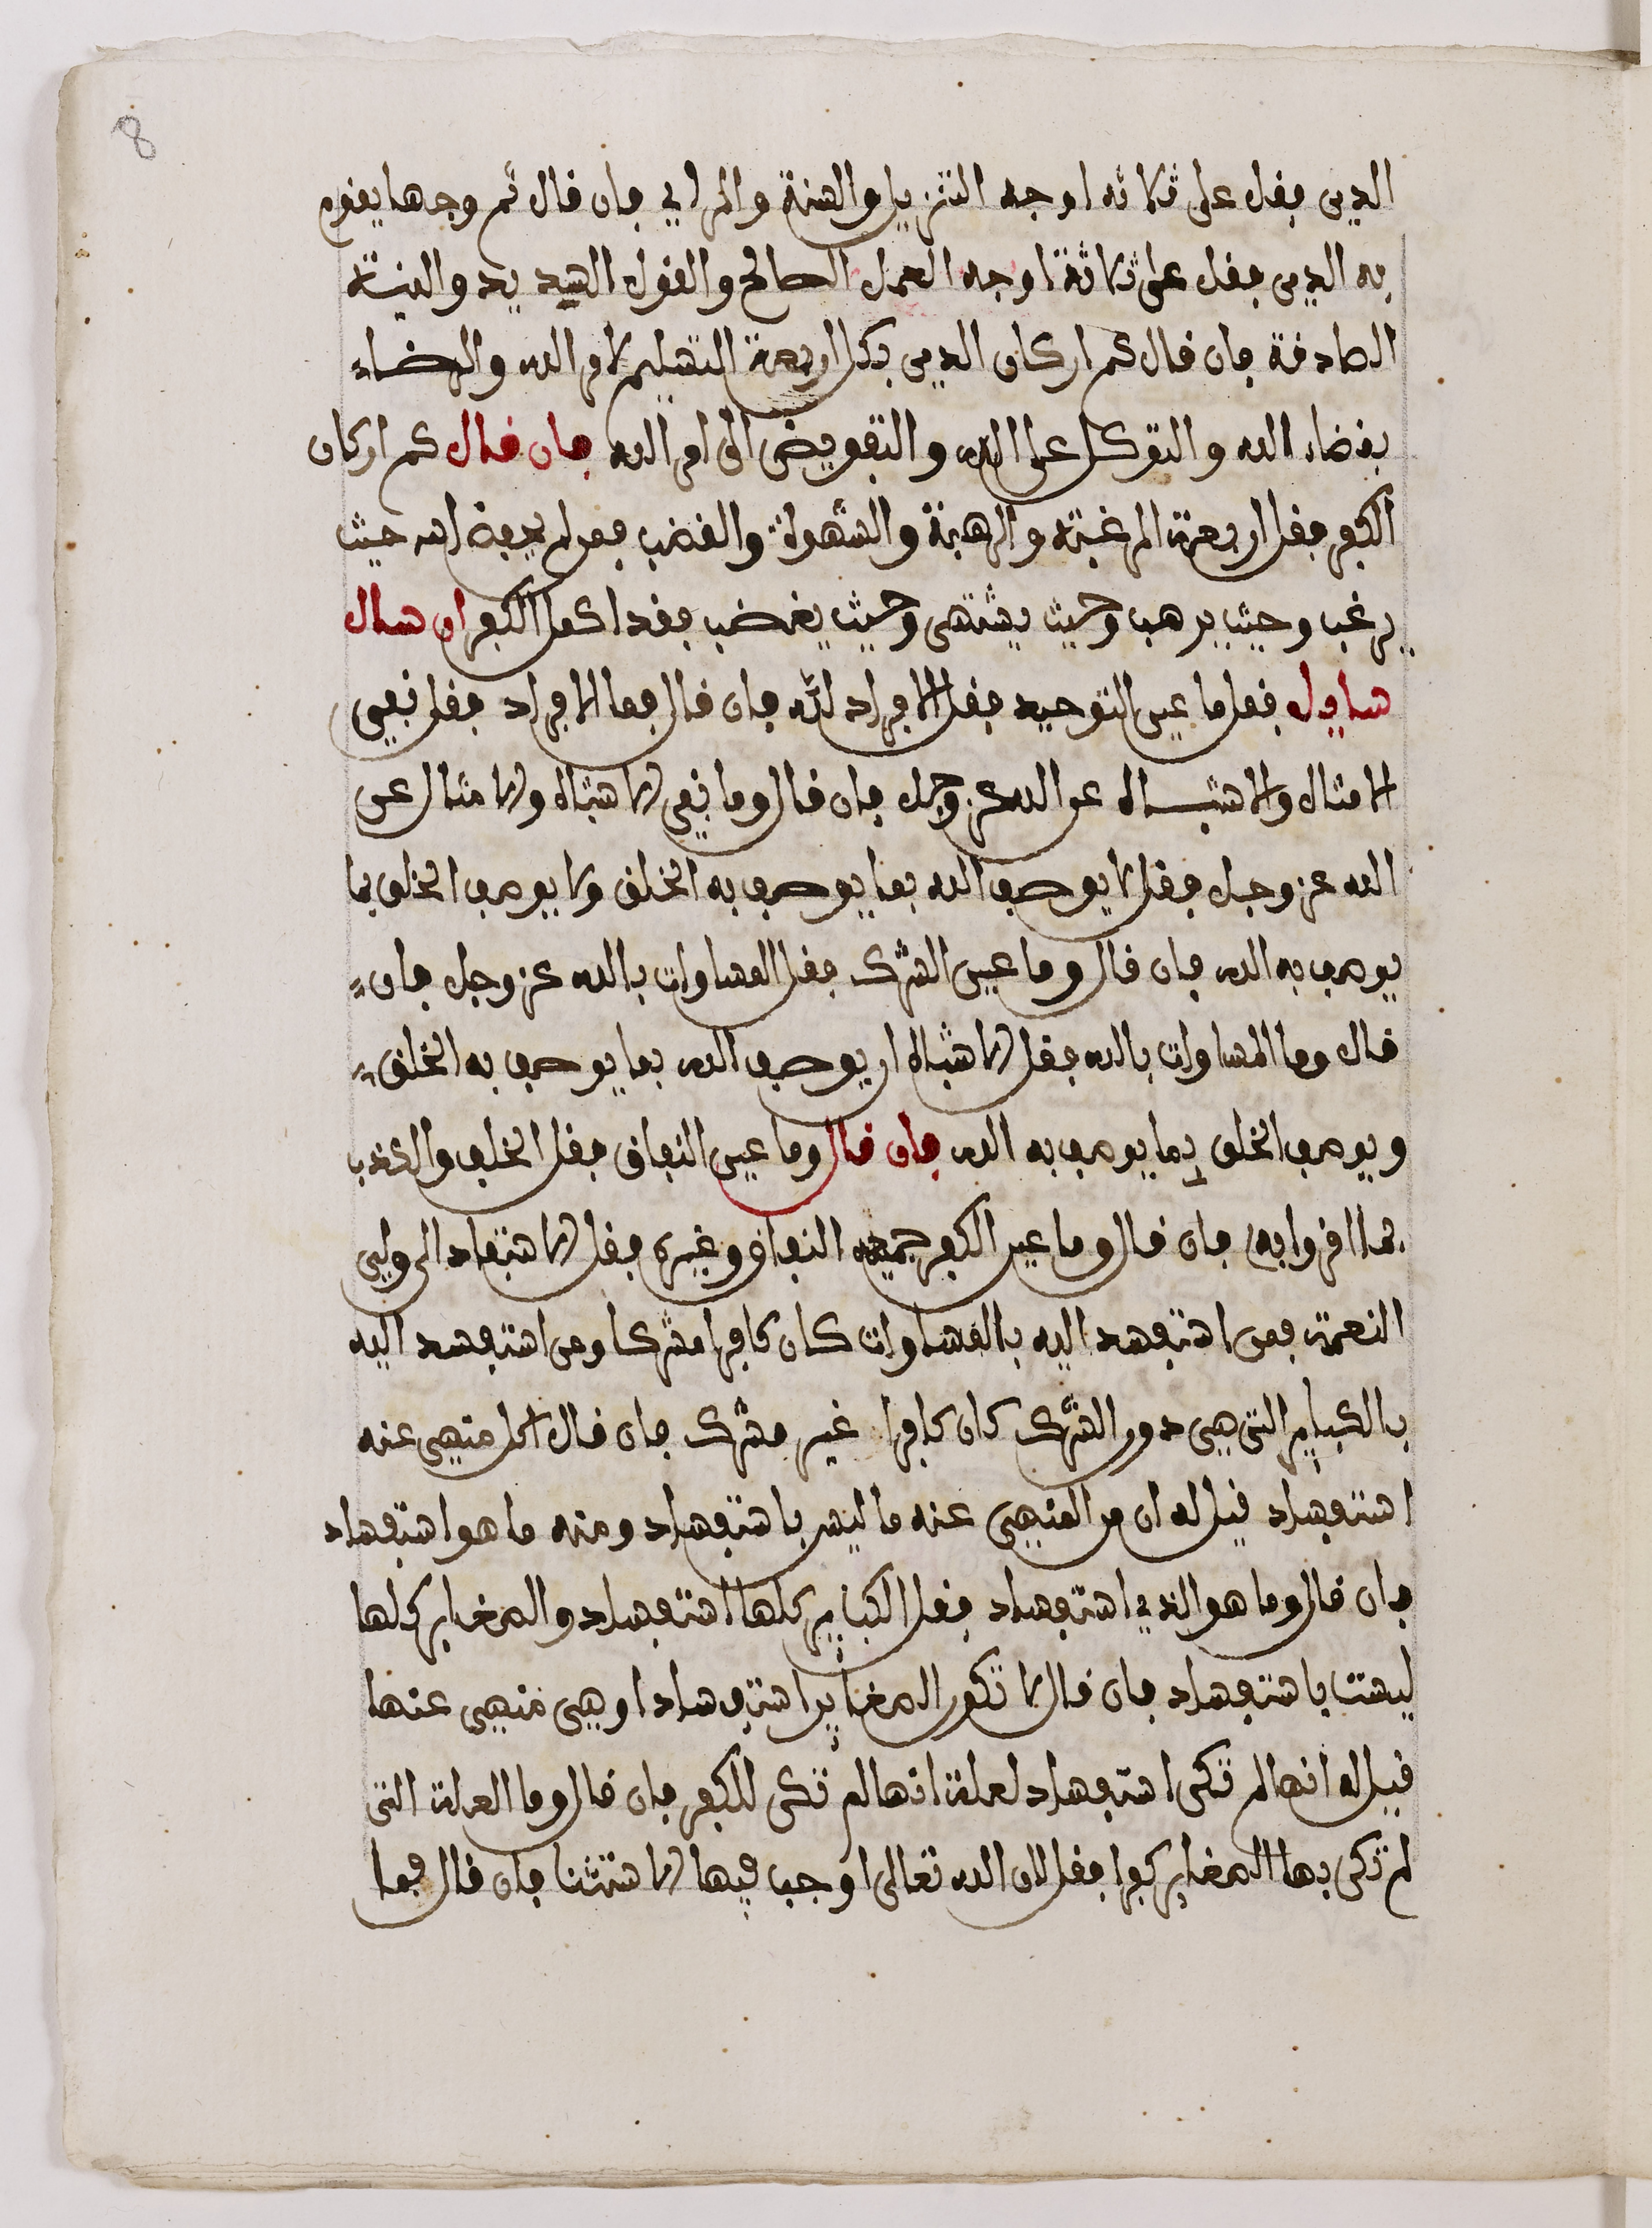 8
الدين فقل على ثلاثه اوجه التنزيل والسنة والراي فان قال كم وجها يقوم
به الدين فقل على ثلاثة اوجه العمل الصالح والقول السديد والنية
الصادقة فان قال كم اركان الدين فقل اربعة التسليم لامر الله والرضاء
بقضاء الله والتوكل على الله والتفويض الى امر الله فان قال كم اركان
الكفر فقل اربعة الرغبة والرهبة والشهوة والغضب فمن لم يعرف الله حيث
يرغب وحيث يرهب وحيث يشتهي وحيث يغضب فقد اكمل الكفر ان سال
سايل فقل ما عين التوحيد فقل الافراد لله فان قال فما الافراد فقل نفي
الامثال والاشباه عن الله عز وجل فان قال وما نفي الاشباه والامثال عن
الله عز وجل فقل لا يوصف الله بما يوصف به الخلق ولا يوصف الخلق بما
يوصف به الله فان قال وما عين الشرك فقل المساوات بالله عز وجل فان
قال وما المساوات بالله فقل الاشباه ان يوصف الله بما يوصف به الخلق
ويوصف الخلق بما يوصف به الله فان قال وما عين النفاق فقل الخلف والكذب
بما اقروا به فان قال وما عين الكفر جميعه النفاق وغيره فقل الاستفساد الى ولي
النعمة فمن استفسد اليه بالمساوات كان كافرا مشركا ومن استفسد اليه
بالكباير التي هي دون الشرك كان كافرا غير مشرك فان قال اكل منهي عنه
استفساد قيل له ان من المنهي عنه ما ليس باستفساد ومنه ما هو استفساد
فان قال وما هو الذي استفساد فقل الكباير كلها استفساد والصغاير كلها
ليست باستفساد فان قال لا تكون الصغاير استفسادا وهي منهي عنها
قيل له انها لم تكن استفساد لعلة انها لم تكن للكفر فان قال وما العلة التي
لم تكن بها الصغاير كفرا فقل لان الله تعالى اوجب فيها الاستثنا فان قال فما